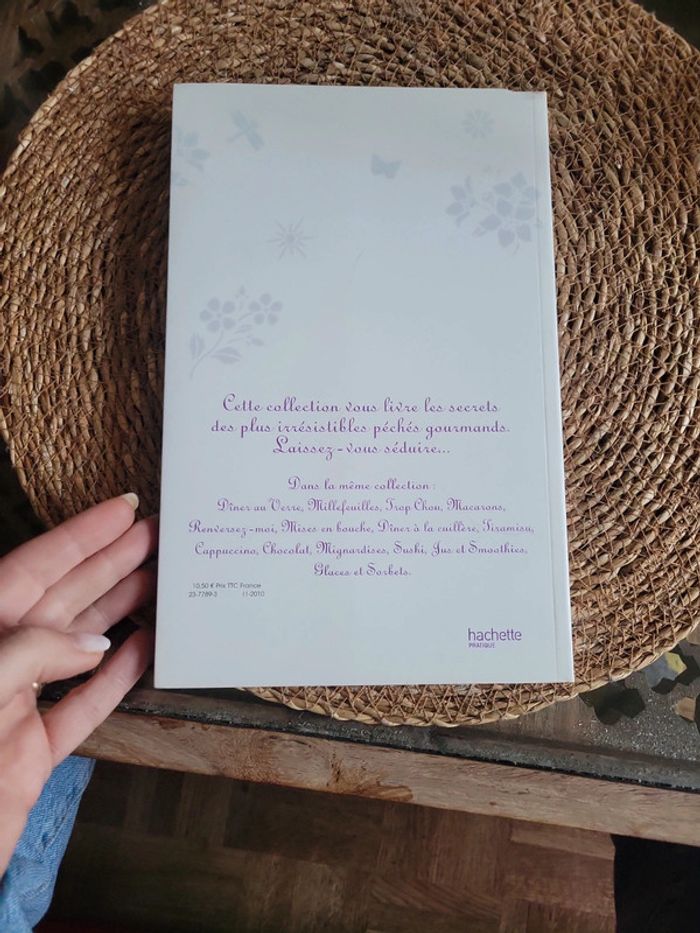 Cette collection vous livre les secrets
des plus irrésistibles péchés gourmands.
Laissez-vous séduire...
Dans la même collection :
Dîner au Verre, Millefeuilles, Trop Chou, Macarons,
Renversez-moi, Mises en bouche, Dîner à la cuillère, Tiramisu,
Cappuccino, Chocolat, Mignardises, Sushi, Jus et Smoothies,
Glaces et Sorbets.
10,50 € Prix TTC France
23-7789-3 11-2010
hachette
PRATIQUE